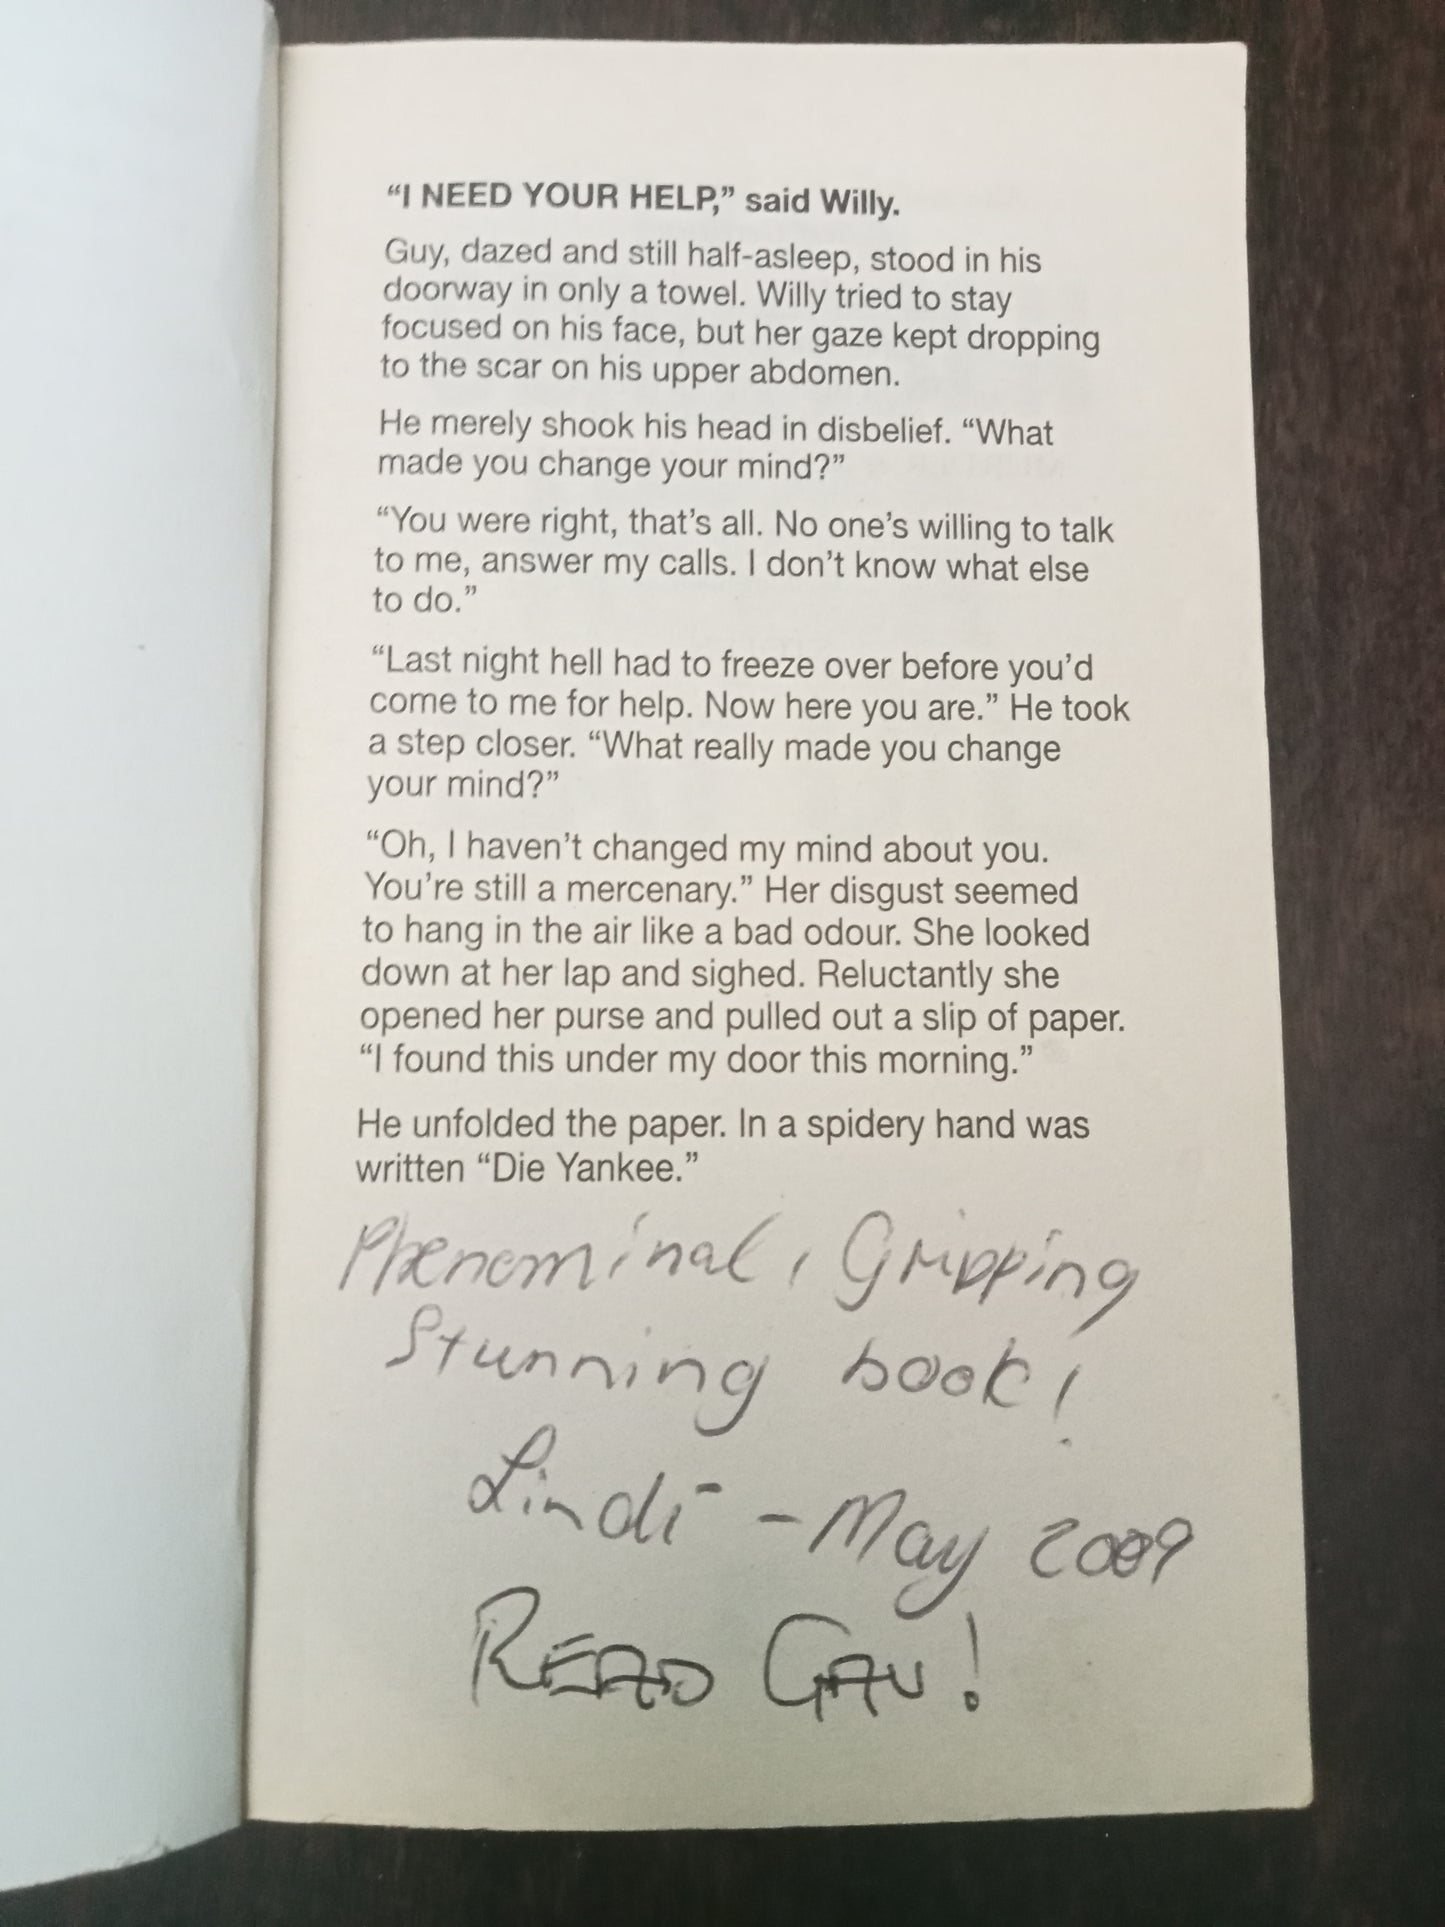 “I NEED YOUR HELP,” said Willy.
Guy, dazed and still half-asleep, stood in his
doorway in only a towel. Willy tried to stay
focused on his face, but her gaze kept dropping
to the scar on his upper abdomen.
He merely shook his head in disbelief. “What
made you change your mind?”
“You were right, that’s all. No one’s willing to talk
to me, answer my calls. I don’t know what else
to do.”
“Last night hell had to freeze over before you’d
come to me for help. Now here you are.” He took
a step closer. “What really made you change
your mind?”
“Oh, I haven’t changed my mind about you.
You’re still a mercenary.” Her disgust seemed
to hang in the air like a bad odour. She looked
down at her lap and sighed. Reluctantly she
opened her purse and pulled out a slip of paper.
“I found this under my door this morning.”
He unfolded the paper. In a spidery hand was
written “Die Yankee.”
Phenominal, Gripping
Stunning book!
Lindi - May 2009
READ GAV!